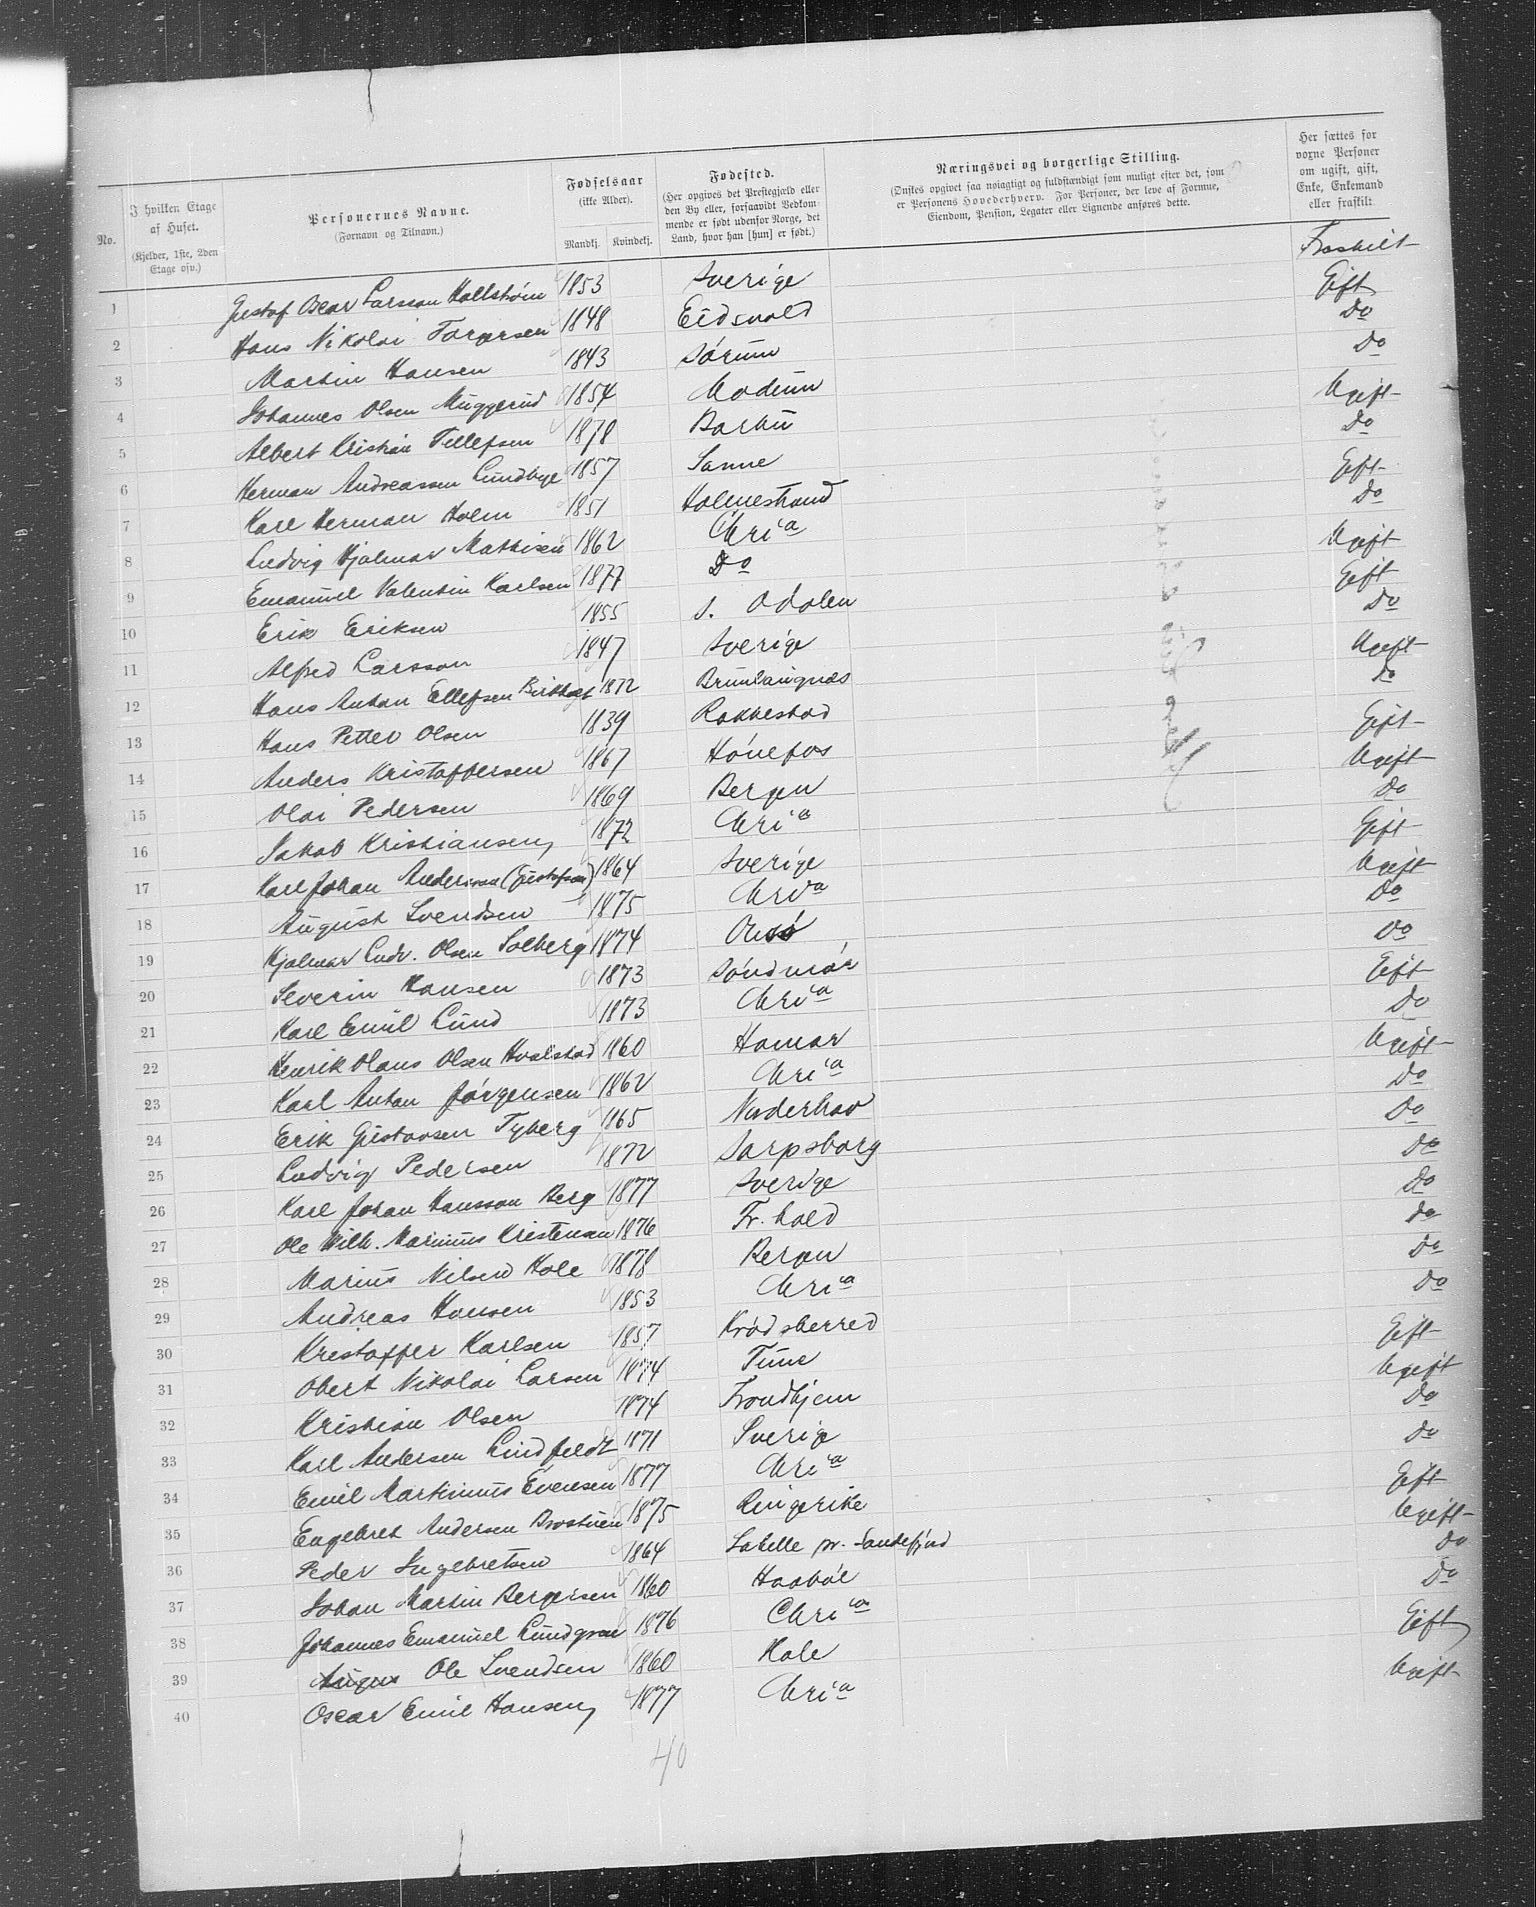 No.
I hvilken Etage af Huset.
(Kjelder, 1ste, 2den Etage osv.)
Personernes Navne.
(Fornavn og Tilnavn.)
Fødselsaar
(ikke Alder).
Mandkj. Kvindekj.
Fødested.
(Her opgives det Prestegjæld eller
den By eller, forsaavidt Vedkom-
mende er født udenfor Norge, det
Land, hvor han [hun] er født.)
Næringsvei og borgerlige Stilling.
(Ønskes opgivet saa nøiagtigt og fuldstændigt som muligt efter det, som
er Personens Hovederhverv. For Personer, der leve af Formue,
Eiendom, Pension, Legater eller Lignende anføres dette.
Her sættes for
voxne Personer
om ugift, gift,
Enke, Enkemand
eller fraskilt.
1 Gustaf Oscar Larsson Hallström 1853 Sverige Fraskilt
2 Hans Nikolai Torgersen 1848 Eidsvold Gift
3 Martin Hansen 1843 Sørum Do
4 Johannes Olsen Muggerud 1854 Modum Do
5 Albert Kristian Tellefsen 1878 Barbu Ugift
6 Herman Andreassen Lundbye 1857 Sanne Do
7 Karl Herman Holm 1851 Holmestrand Gift
8 Ludvig Hjalmar Mathisen 1862 Chria Do
9 Emanuel Valentin Karlsen 1877 Do Ugift
10 Erik Eriksen 1855 S. Odalen Gift
11 Alfred Larsson 1847 Sverige Do
12 Hans Anton Ellefsen 1872 Brunlaugnæs Ugift
13 Hans Petter Olsen 1839 Rakkestad Do
14 Anders Kristoffersen 1867 Hønefos Gift
15 Olai Pedersen 1869 Bergen Ugift
16 Jakob Kristiansen 1872 Chria Do
17 Karl Johan Andersson (Gustafson) 1864 Sverige Gift
18 August Svendsen 1875 Chria Ugift
19 Hjalmar Ludv. Olsen Solberg 1874 Onsø Do
20 Severin Hansen 1873 Søndmør Do
21 Karl Emil Lund 1873 Chria Gift
22 Henrik Olaus Olsen Hvalstad 1860 Hamar Do
23 Karl Anton Jørgensen 1862 Chria Ugift
24 Erik Gustavsen Tyberg 1865 Naderhov Do
25 Ludvig Pedersen 1872 Sarpsborg Do
26 Karl Johan Hansson Berg 1877 Sverige Do
27 Ole Wilh. Marinius Kristensen 1876 Fr.hald Do
28 Marius Nilsen Hole 1878 Bergen Do
29 Andreas Hansen 1853 Chria Do
30 Kristoffer Karlsen 1857 Krødsherred Do
31 Obert Nikolai Larsen 1874 Tune Gift
32 Kristian Olsen 1874 Trondhjem Ugift
33 Karl Andersen Lindfeldt 1871 Sverige Do
34 Emil Martinius Evensen 1877 Chria Do
35 Engebret Andersen 1875 Ringerike Gift
36 Peder Ingebretsen 1864 Labelle pr. Sandefjord Ugift
37 Johan Martin Bergersen 1860 Haabøl Do
38 Johannes Emanuel Lundgren 1876 Chria Do
39 Ole Svendsen 1860 Hole Gift
40 Oscar Emil Hansen 1877 Chria Ugift
40